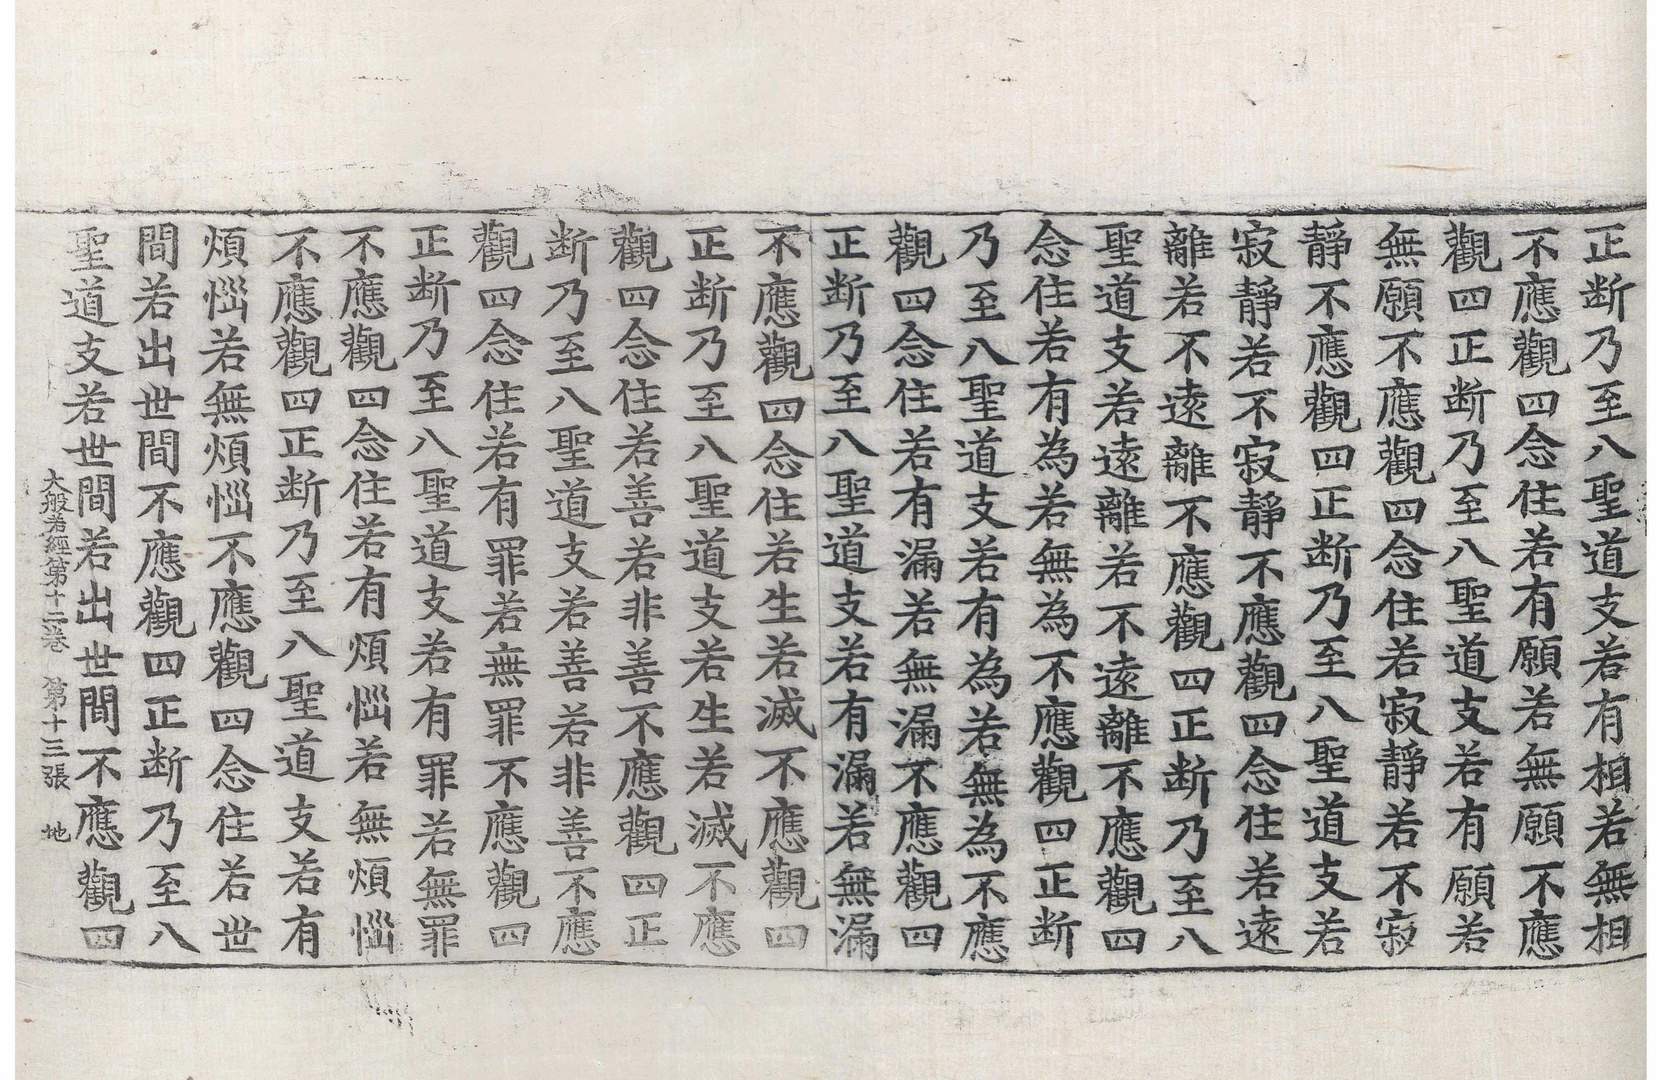 正断乃至八聖道支若有相若無相
不應觀四念住若有願若無願不應
觀四正断乃至八聖道支若有願若
無願不應觀四念住若寂靜若不寂
靜不應觀四正断乃至八聖道支若
寂靜若不寂靜不應觀四念住若遠
離若不遠離不應觀四正断乃至八
聖道支若遠離若不遠離不應觀四
念住若有為若無為不應觀四正断
乃至八聖道支若有為若無為不應
觀四念住若有漏若無漏不應觀四
正断乃至八聖道支若有漏若無漏
不應觀四念住若生若滅不應觀四
正断乃至八聖道支若生若滅不應
觀四念住若善若非善不應觀四正
断乃至八聖道支若善若非善不應
觀四念住若有罪若無罪不應觀四
正断乃至八聖道支若有罪若無罪
不應觀四念住若有煩惱若無煩惱
不應觀四正断乃至八聖道支若有
煩惱若無煩惱不應觀四念住若世
間若出世間不應觀四正断乃至八
聖道支若世間若出世間不應觀四
大般若經第十二卷 第十三張 地